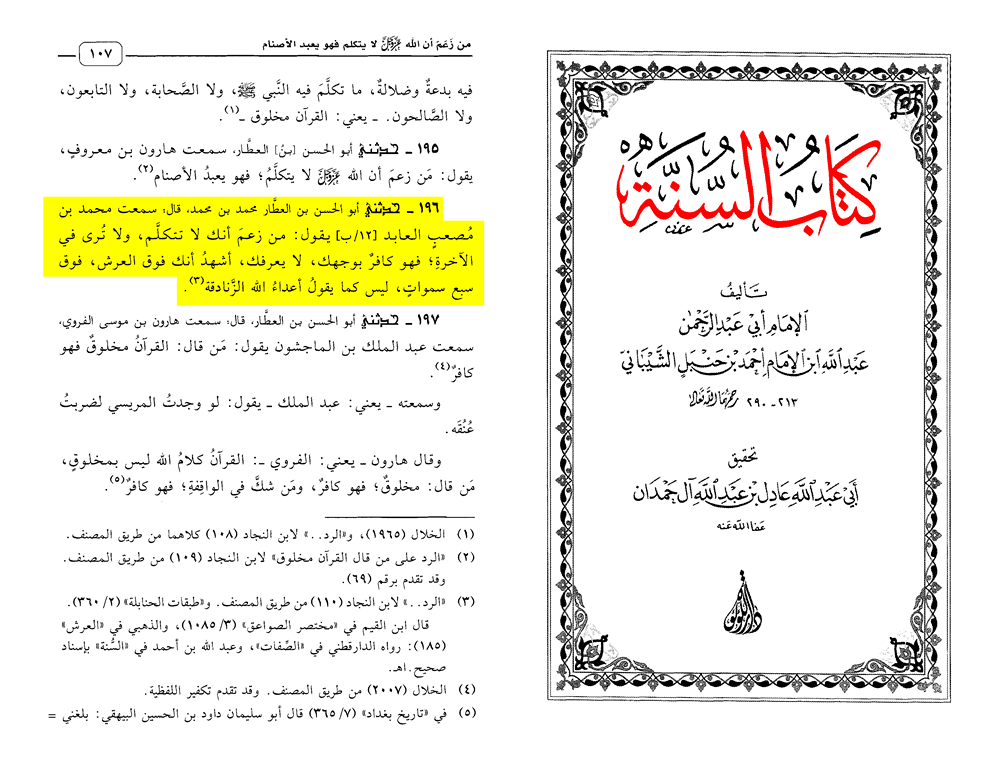 من زَعَمَ أن الله عَزَّوَجَلَّ لا يتكلم فهو يعبد الأصنام
١٠٧
فيه بدعةٌ وضلالةٌ، ما تكلَّمَ فيه النَّبي ﷺ، ولا الصَّحابة، ولا التابعون،
ولا الصَّالحون. ـ يعني: القرآن مخلوق ـ(١).
١٩٥ ـ حدثني أبو الحسن [بنُ] العطَّار، سمعت هارون بن معروفٍ،
يقول: مَن زعمَ أن الله عَزَّوَجَلَّ لا يتكلَّمُ؛ فهو يعبدُ الأصنام(٢).
١٩٦ ـ حدثني أبو الحسن بن العطَّار محمد بن محمد، قال: سمعت محمد بن
مُصعبٍ العابد [١٢/ب] يقول: من زعمَ أنك لا تتكلَّم، ولا تُرى في
الآخرةِ؛ فهو كافرٌ بوجهك، لا يعرفك، أشهدُ أنك فوق العرش، فوق
سبع سمواتٍ، ليس كما يقولُ أعداءُ الله الزَّنادقة(٣).
١٩٧ ـ حدثني أبو الحسن بن العطَّار، قال: سمعت هارون بن موسى الفروي،
سمعت عبد الملك بن الماجشون يقول: مَن قال: القرآنُ مخلوقٌ فهو
كافرٌ(٤).
وسمعته ـ يعني: عبد الملك ـ يقول: لو وجدتُ المريسي لضربتُ
عُنُقَه.
وقال هارون ـ يعني: الفروي ـ: القرآنُ كلامُ الله ليس بمخلوقٍ،
مَن قال: مخلوقٌ؛ فهو كافرٌ، ومَن شكَّ في الواقِفةِ؛ فهو كافرٌ(٥).
(١) الخلال (١٩٦٥)، و«الرد..» لابن النجاد (١٠٨) كلاهما من طريق المصنف.
(٢) «الرد على من قال القرآن مخلوق» لابن النجاد (١٠٩) من طريق المصنف.
وقد تقدم برقم (٦٩).
(٣) «الرد..» لابن النجاد (١١٠) من طريق المصنف. و«طبقات الحنابلة» (٢/ ٣٦٠).
قال ابن القيم في «مختصر الصواعق» (٣/ ١٠٨٥)، والذهبي في «العرش»
(١٨٥): رواه الدارقطني في «الصِّفات»، وعبد الله بن أحمد في «السُّنة» بإسناد
صحيح.اهـ.
(٤) الخلال (٢٠٠٧) من طريق المصنف. وقد تقدم تكفير اللفظية.
(٥) في «تاريخ بغداد» (٧/ ٣٦٥) قال أبو سليمان داود بن الحسين البيهقي: بلغني =
كِتَابُ السُّنَّةِ
تأليفُ
الإمام أبي عبد الرحمن
عبد الله ابن الإمام أحمد بن حنبل الشيباني
٢١٣ - ٢٩٠ رحمهما الله تعالى
تحقيق
أبي عبد الله عادل بن عبد الله آل حمدان
عفا الله عنه
دار اللؤلؤة